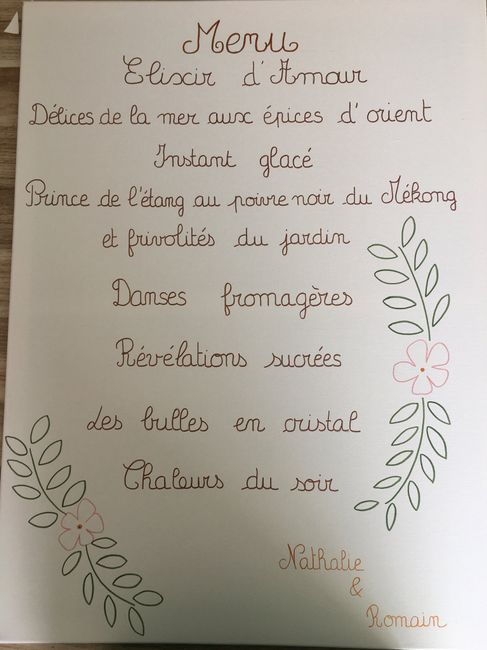 Menu
Elixir d'Amour
Délices de la mer aux épices d'orient
Instant glacé
Prince de l'étang au poivre noir du Mékong
et frivolités du jardin
Danses fromagères
Révélations sucrées
Les bulles en cristal
Chaleurs du soir
Nathalie
&
Romain